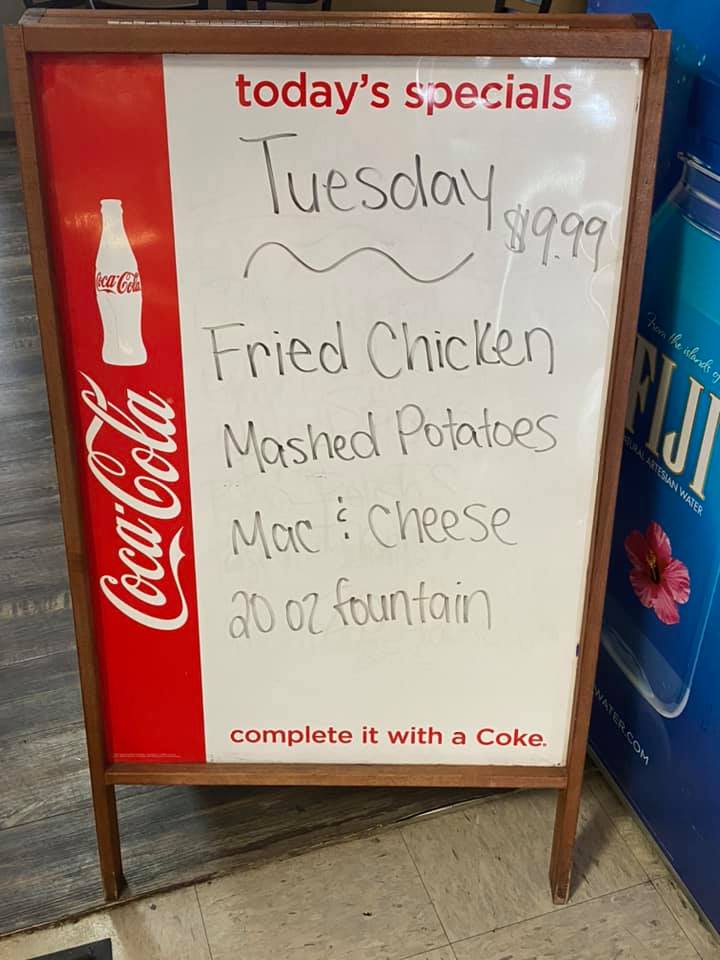 today's specials
Tuesday
$9.99
Fried Chicken
Mashed Potatoes
Mac & Cheese
20 oz fountain
complete it with a Coke.
Coca-Cola
Coca-Cola
From the islands of
FIJI
ARTESIAN WATER
WATER.COM